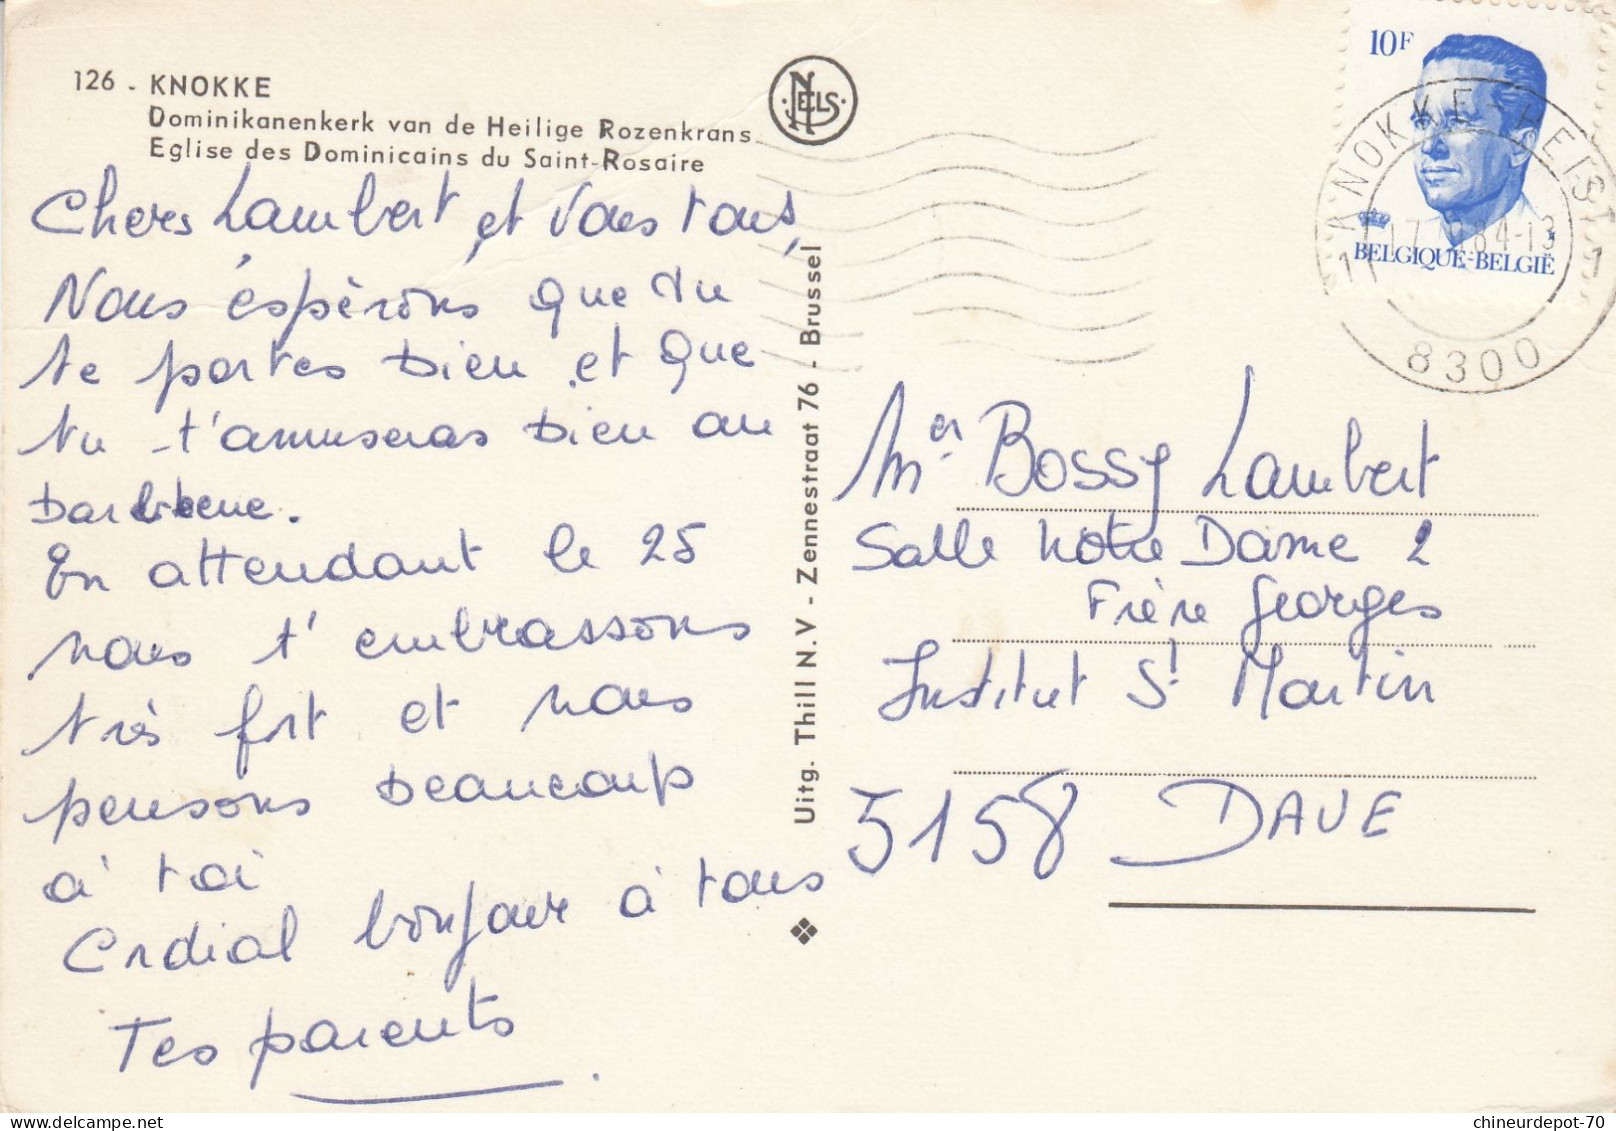 126 - KNOKKE
Dominikanenkerk van de Heilige Rozenkrans
Eglise des Dominicains du Saint-Rosaire
NELS
10F
BELGIQUE-BELGIË
KNOKKE-HEIST
1 1
8300
Chers Lambert et Vous tous,
Nous éspèrons que tu
te portes bien et que
tu t'amuseras bien au
barbecue.
En attendant le 25
nous t'embrassons
très fort et nous
pensons beaucoup
à toi
Cordial bonjour à tous
Tes parents.
Uitg. Thill N.V - Zennestraat 76 - Brussel
Mr Bossy Lambert
Salle Notre Dame 2
Frère Georges
Institut St Martin
5158 DAVE
chineurdepot-70